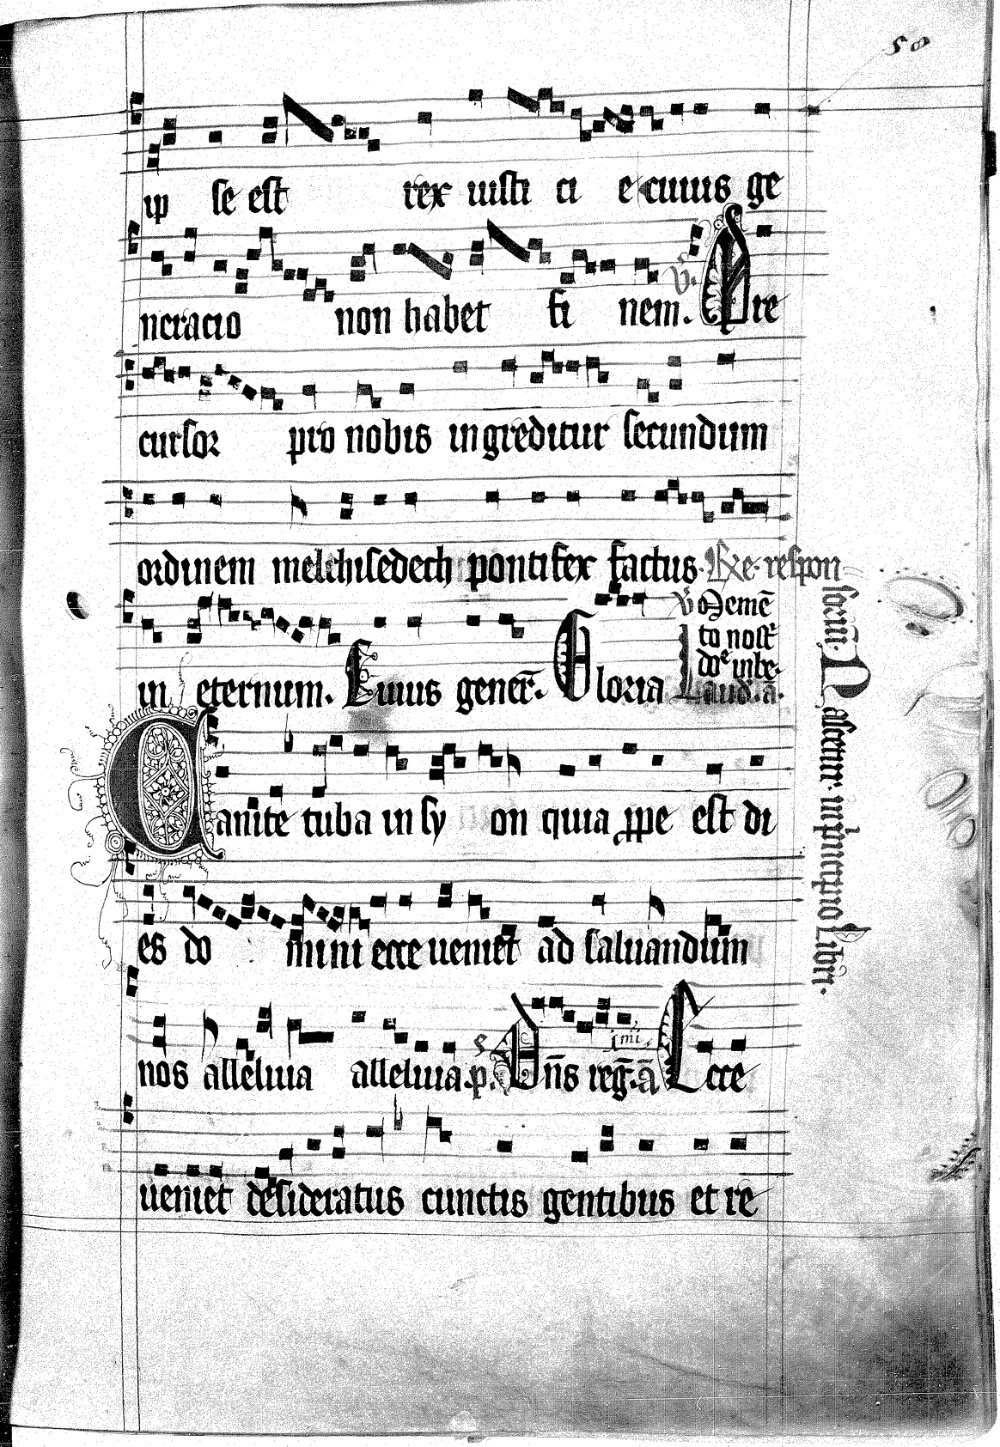 50
ip se est rex iusti ci e cuius ge
neracio non habet fi nem. V. Pre
cursor pro nobis ingreditur secundum
ordinem melchisedech pontifex factus. Re. respon
in eternum. Cuius gener̄. Gloria
v̄ Memē
to nost
doe in be
Laud. a.
Canite tuba in sy on quia ꝓpe est di
es do mini ecce ueniet ad saluandum
nos alleluia alleluia. p. Dn̄s reḡ. ā Ecce
ueniet desideratus cunctis gentibus et re